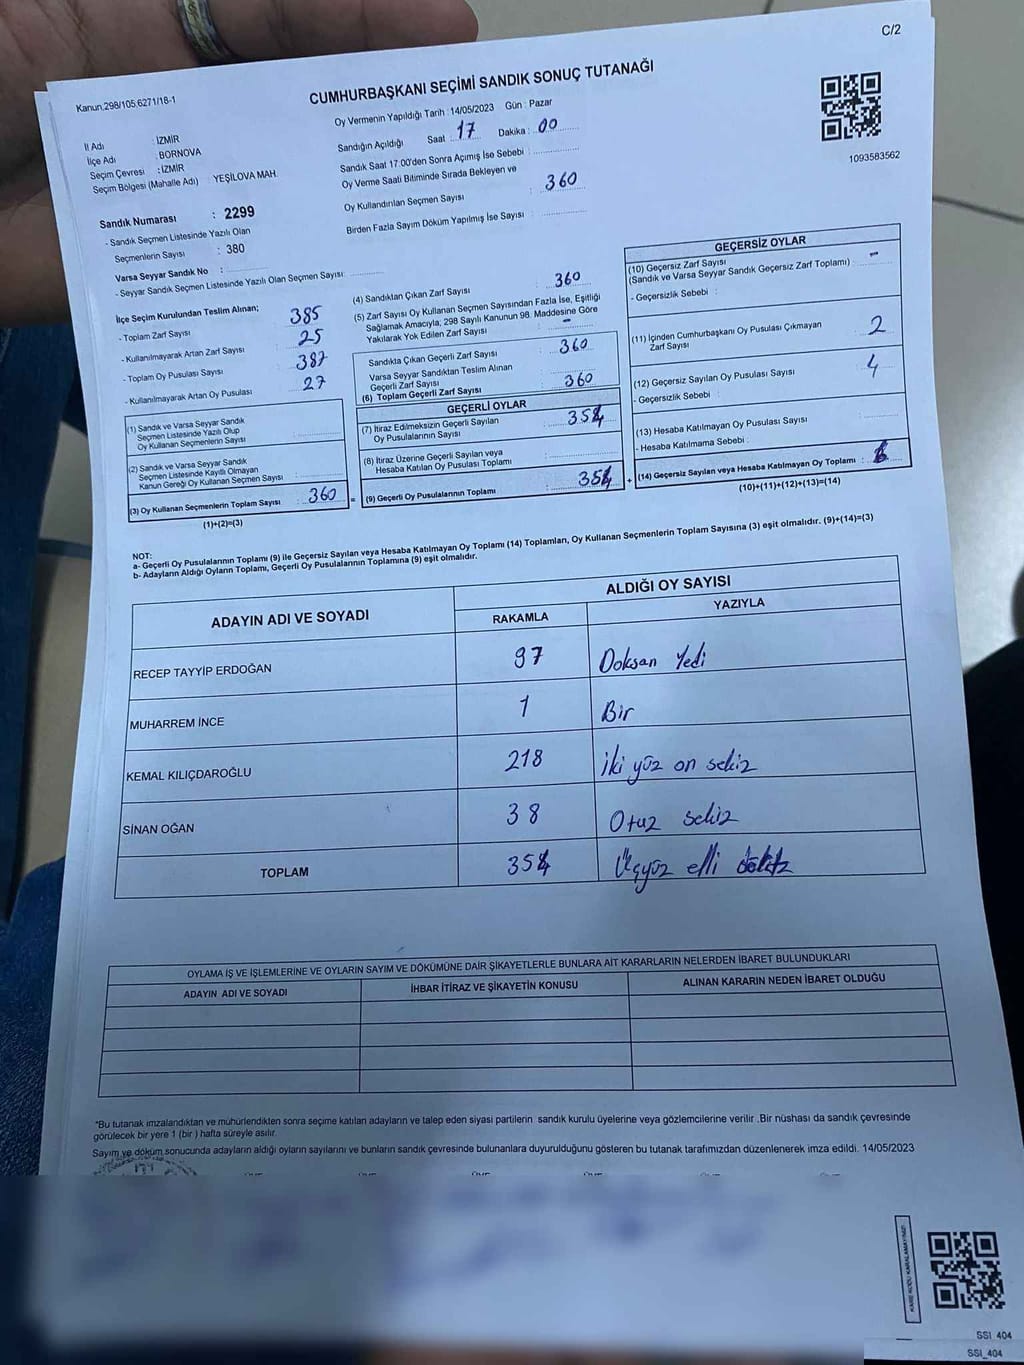 C/2
Kanun.298/105.6271/18-1
CUMHURBAŞKANI SEÇİMİ SANDIK SONUÇ TUTANAĞI
Oy Vermenin Yapıldığı Tarih : 14/05/2023 Gün : Pazar
İl Adı : İZMİR
İlçe Adı : BORNOVA
Seçim Çevresi : İZMİR
Seçim Bölgesi (Mahalle Adı) YEŞİLOVA MAH.
Sandığın Açıldığı Saat : 17 Dakika : 00
Sandık Saat 17:00'den Sonra Açımış İse Sebebi :
Oy Verme Saati Bitiminde Sırada Bekleyen ve
Oy Kullandırılan Seçmen Sayısı : 360
Birden Fazla Sayım Döküm Yapılmış İse Sayısı :
1093583562
Sandık Numarası : 2299
- Sandık Seçmen Listesinde Yazılı Olan
Seçmenlerin Sayısı : 380
Varsa Seyyar Sandık No :
- Seyyar Sandık Seçmen Listesinde Yazılı Olan Seçmen Sayısı:
İlçe Seçim Kurulundan Teslim Alınan;
- Toplam Zarf Sayısı : 385
- Kullanılmayarak Artan Zarf Sayısı : 25
- Toplam Oy Pusulası Sayısı : 387
- Kullanılmayarak Artan Oy Pusulası : 27
(1) Sandık ve Varsa Seyyar Sandık
Seçmen Listesinde Yazılı Olup
Oy Kullanan Seçmenlerin Sayısı :
(2) Sandık ve Varsa Seyyar Sandık
Seçmen Listesinde Kayıtlı Olmayan
Kanun Gereği Oy Kullanan Seçmen Sayısı :
(3) Oy Kullanan Seçmenlerin Toplam Sayısı : 360
(1)+(2)=(3)
=
(4) Sandıktan Çıkan Zarf Sayısı : 360
(5) Zarf Sayısı Oy Kullanan Seçmen Sayısından Fazla İse, Eşitliği
Sağlamak Amacıyla, 298 Sayılı Kanunun 98. Maddesine Göre
Yakılarak Yok Edilen Zarf Sayısı : -
Sandıkta Çıkan Geçerli Zarf Sayısı : 360
Varsa Seyyar Sandıktan Teslim Alınan
Geçerli Zarf Sayısı :
(6) Toplam Geçerli Zarf Sayısı : 360
GEÇERLİ OYLAR
(7) İtiraz Edilmeksizin Geçerli Sayılan
Oy Pusulalarının Sayısı : 354
(8) İtiraz Üzerine Geçerli Sayılan veya
Hesaba Katılan Oy Pusulası Toplamı :
(9) Geçerli Oy Pusulalarının Toplamı : 354
+
GEÇERSİZ OYLAR
(10) Geçersiz Zarf Sayısı
(Sandık ve Varsa Seyyar Sandık Geçersiz Zarf Toplamı) : -
- Geçersizlik Sebebi :
(11) İçinden Cumhurbaşkanı Oy Pusulası Çıkmayan
Zarf Sayısı : 2
(12) Geçersiz Sayılan Oy Pusulası Sayısı : 4
- Geçersizlik Sebebi :
(13) Hesaba Katılmayan Oy Pusulası Sayısı :
- Hesaba Katılmama Sebebi :
(14) Geçersiz Sayılan veya Hesaba Katılmayan Oy Toplamı : 6
(10)+(11)+(12)+(13)=(14)
NOT:
a- Geçerli Oy Pusulalarının Toplamı (9) ile Geçersiz Sayılan veya Hesaba Katılmayan Oy Toplamı (14) Toplamları, Oy Kullanan Seçmenlerin Toplam Sayısına (3) eşit olmalıdır. (9)+(14)=(3)
b- Adayların Aldığı Oyların Toplamı, Geçerli Oy Pusulalarının Toplamına (9) eşit olmalıdır.
ADAYIN ADI VE SOYADI
ALDIĞI OY SAYISI
RAKAMLA YAZIYLA
RECEP TAYYİP ERDOĞAN 97 Doksan Yedi
MUHARREM İNCE 1 Bir
KEMAL KILIÇDAROĞLU 218 İki yüz on sekiz
SİNAN OĞAN 38 Otuz sekiz
TOPLAM 354 Üçyüz elli
OYLAMA İŞ VE İŞLEMLERİNE VE OYLARIN SAYIM VE DÖKÜMÜNE DAİR ŞİKAYETLERLE BUNLARA AİT KARARLARIN NELERDEN İBARET BULUNDUKLARI
ADAYIN ADI VE SOYADI İHBAR İTİRAZ VE ŞİKAYETİN KONUSU ALINAN KARARIN NEDEN İBARET OLDUĞU
*Bu tutanak imzalandıktan ve mühürlendikten sonra seçime katılan adayların ve talep eden siyasi partilerin sandık kurulu üyelerine veya gözlemcilerine verilir .Bir nüshası da sandık çevresinde
görülecek bir yere 1 (bir ) hafta süreyle asılır.
Sayım ve döküm sonucunda adayların aldığı oyların sayılarını ve bunların sandık çevresinde bulunanlara duyurulduğunu gösteren bu tutanak tarafımızdan düzenlenerek imza edildi. 14/05/2023
KARE KODU KARALAMAYINIZ!
SSI_404
SSI_404